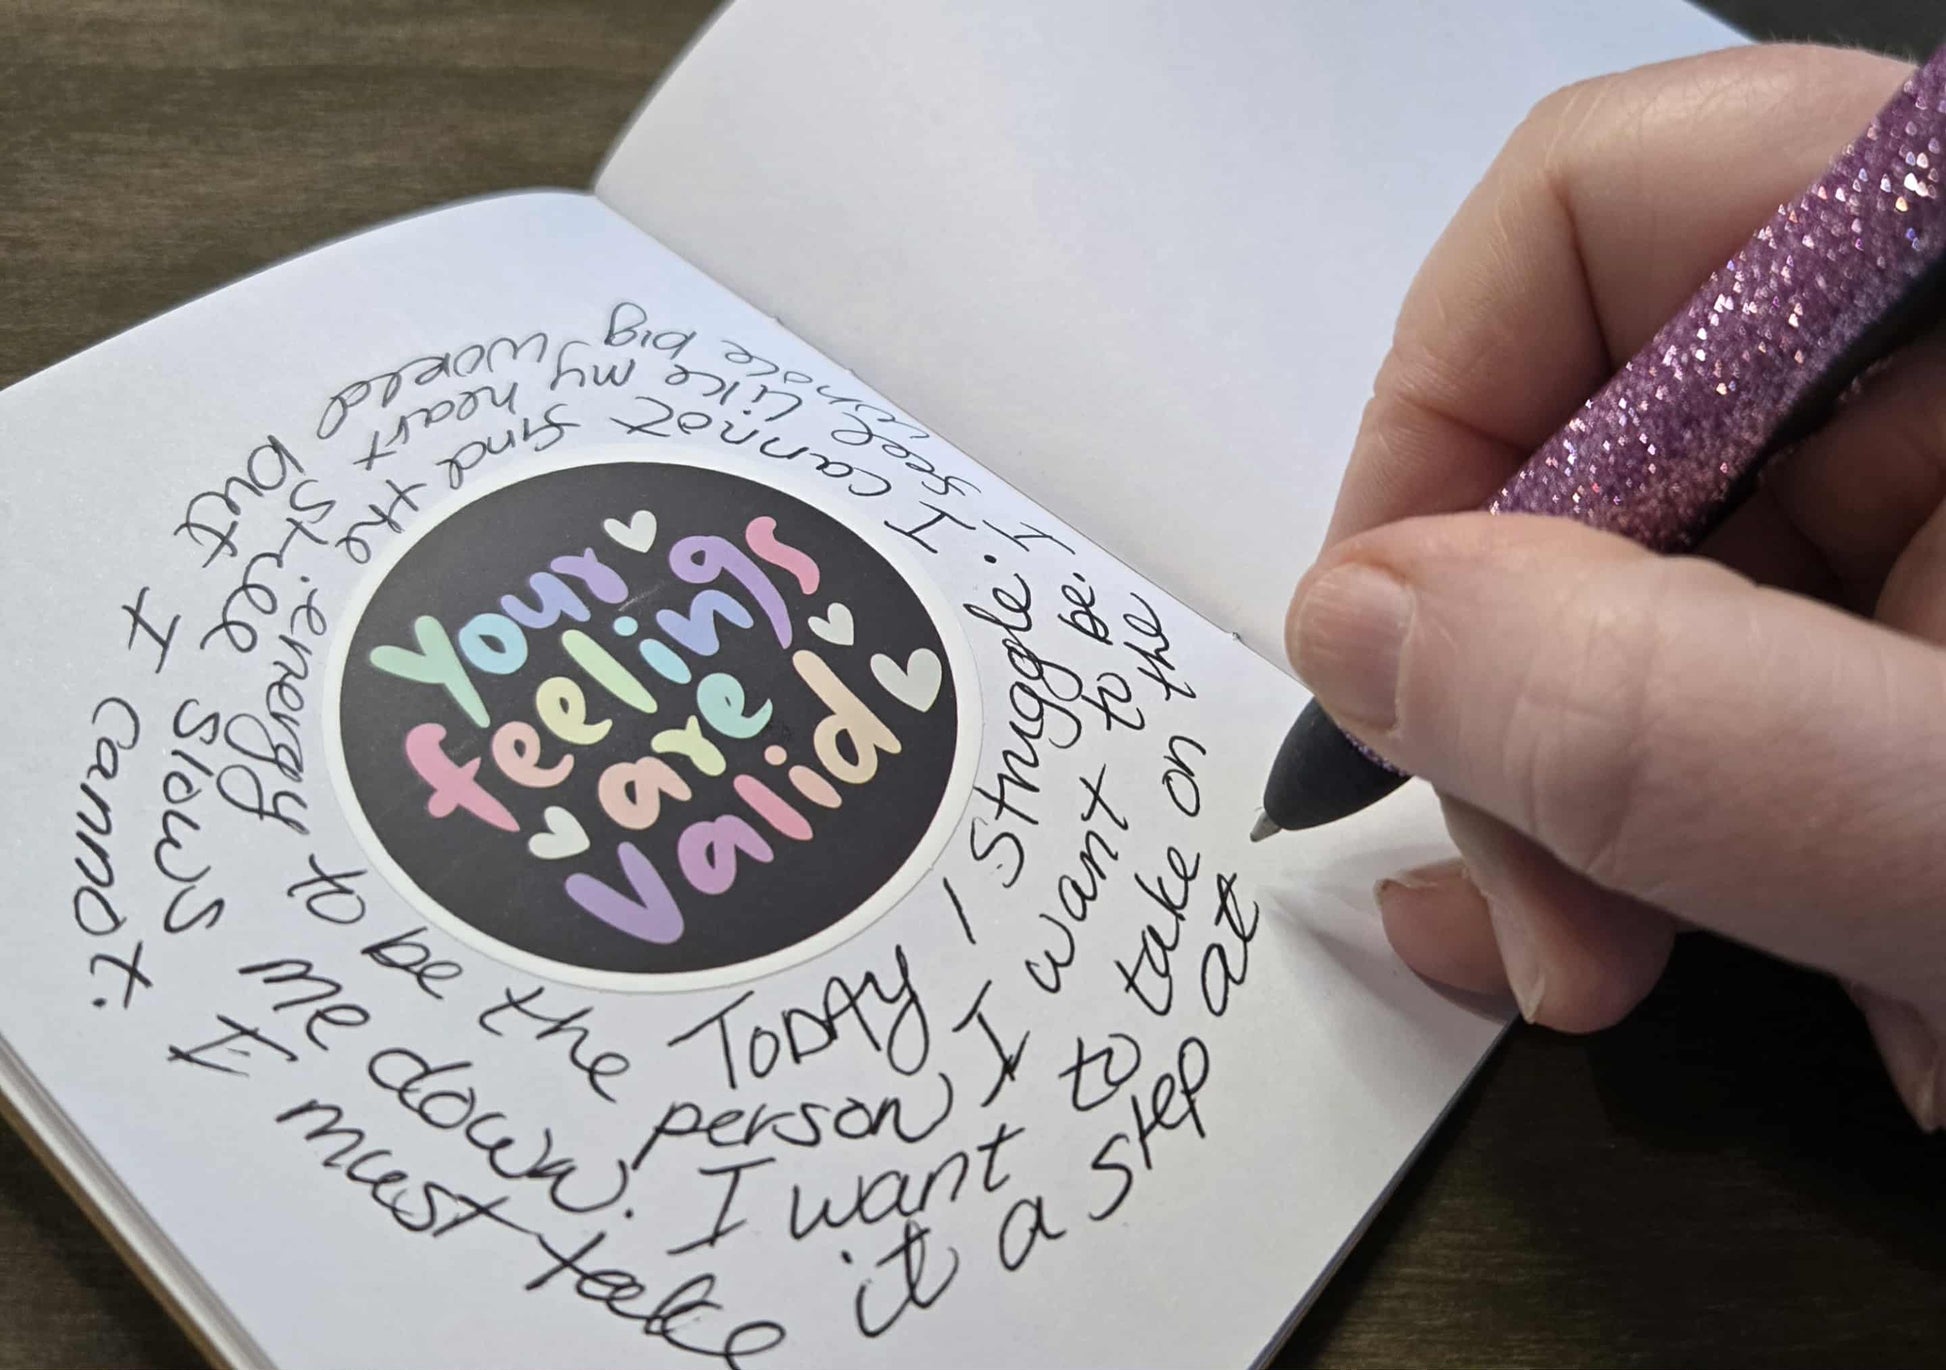 Your
feelings
are
valid
TODAY I struggle. I cannot find the energy to be the
person I want to be. I feel like my heart still slows me down.
I want to take on the whole big world but I cannot.
I must take it a step at